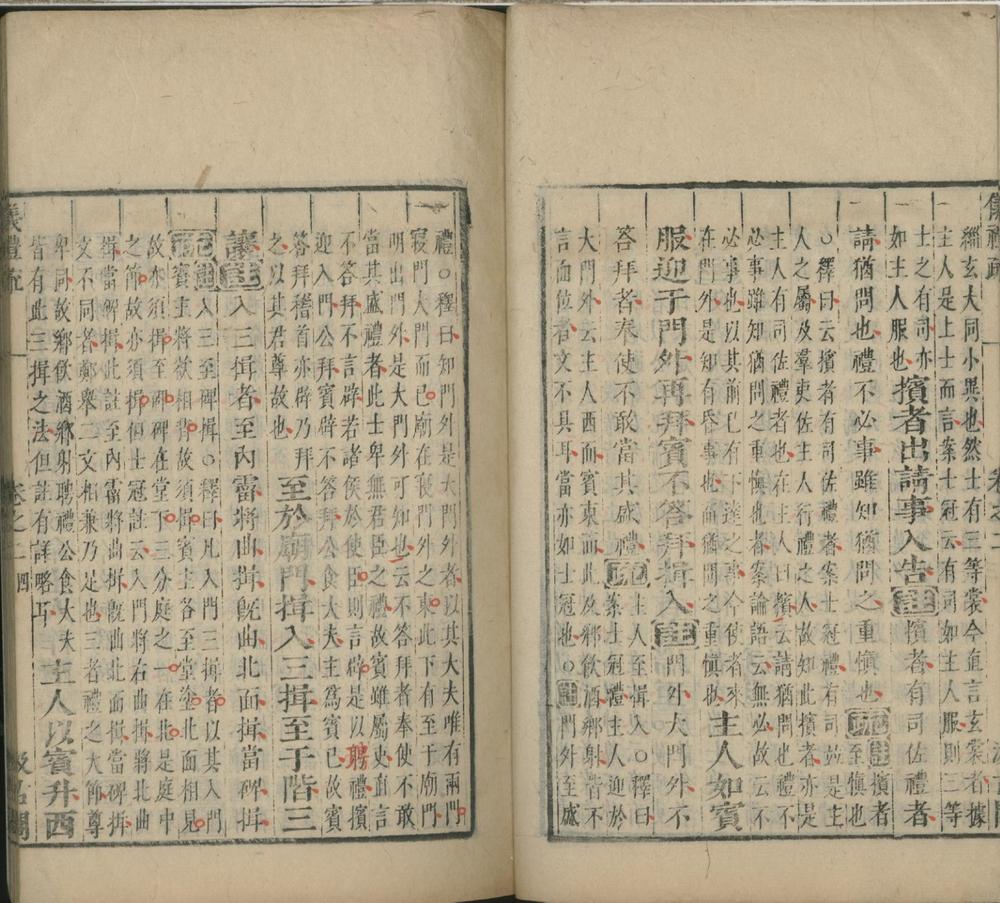 儀禮疏 卷之二
纁玄大同小異也然士有三等裳今直言玄裳者據
主人是上士而言案士冠云有司如主人服則三等
士之有司亦
如主人服也擯者出請事入告注擯者有司佐禮者
請猶問也禮不必事雖知猶問之重慎也疏擯者至慎也
○釋曰云擯者有司佐禮者案士冠禮有司並是主
人之屬及羣吏佐主人行禮之人故知此擯者亦是
主人有司佐禮者也在主人曰擯云請猶問也禮不
必事雖知猶問之重慎也者案論語云無必故云不
必事也以其前已有下達之事今使者來
在門外是知有昏事也而猶問之重慎也主人如賓
服迎于門外再拜賓不答拜揖入注門外大門外不
答拜者奉使不敢當其盛禮疏主人至揖入○釋曰案士冠禮主人迎於
大門外云主人西面賓東面此及鄉飲酒鄉射皆不
言面位者文不具耳當亦如士冠也○注門外至盛
禮○釋曰知門外是大門外者以其大夫唯有兩門
寢門大門而已廟在寢門外之東此下有至于廟門
明此門外是大門外可知也云不答拜者奉使不敢
當其盛禮者此士卑無君臣之禮故賓雖屬吏直言
不答拜不言辟若諸侯於使臣則言辟是以聘禮賓
迎入門公拜賓辟不答拜公食大夫主爲賓已故賓
答拜稽首亦辟乃拜
之以其君尊故也至於廟門揖入三揖至于階三
讓注入三揖者至內霤將曲揖旣曲北面揖當碑揖
疏入三至碑揖○釋曰凡入門三揖者以其入門
賓主將欲相背故須揖賓主各至堂塗北面相見
故亦須揖至碑碑在堂下三分庭之一在北是庭中
之節故亦須揖但士冠注云入門將右曲揖將北曲
揖當碑揖此註至內霤將曲揖旣曲北面揖當碑揖
文不同者鄭舉二文相兼乃足也三者禮之大節尊
卑同故鄉飲酒鄉射聘禮公食大夫
皆有此三揖之法但註有詳略耳主人以賓升西
儀禮疏 卷之二 四 汲古閣